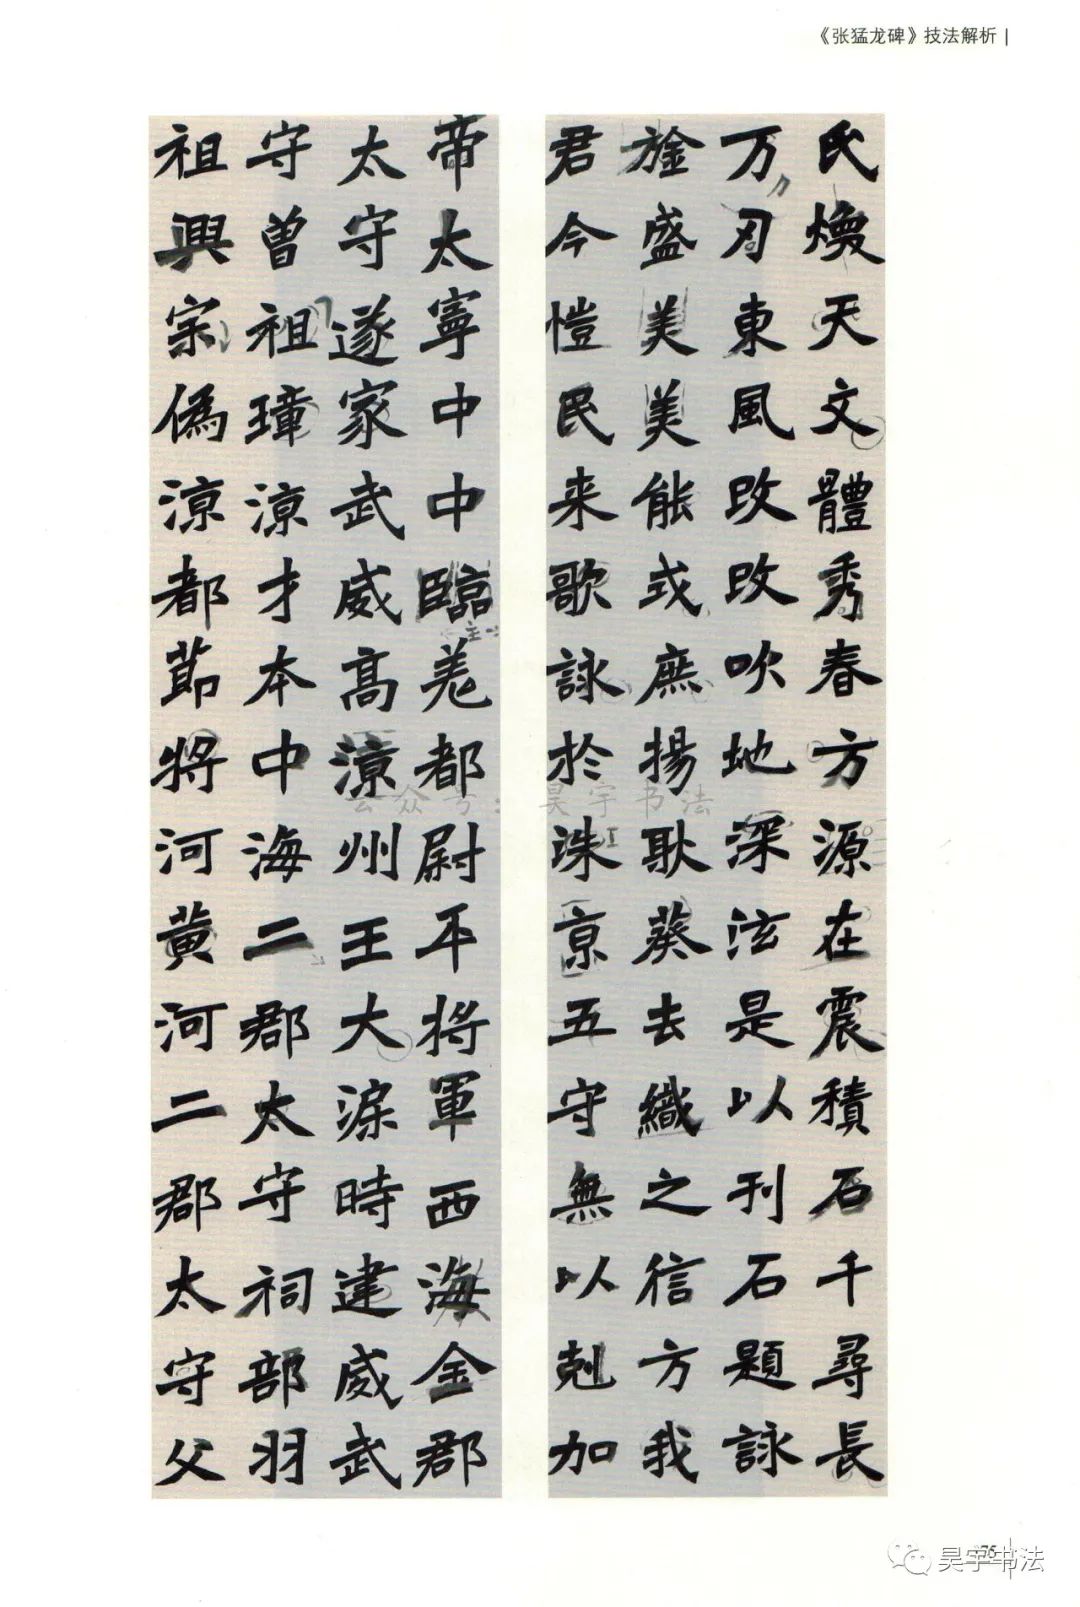 《张猛龙碑》技法解析
氏煥天文體秀春方源在震積石千尋長
万刃東風改改吹地深泫是以刊石題詠
盛美美能或庶揚耿葵去織之信方我
君今愷民来歌詠於诛京五守無以剋加
帝太寧中中臨羌都尉平将軍西海金郡
太守遂家武威高涼州王大涼時建威武
守曾祖璋涼才本中海二郡太守祠部羽
祖興宗偽涼都節将河黄河二郡太守父
公众号：昊宇书法
昊宇书法